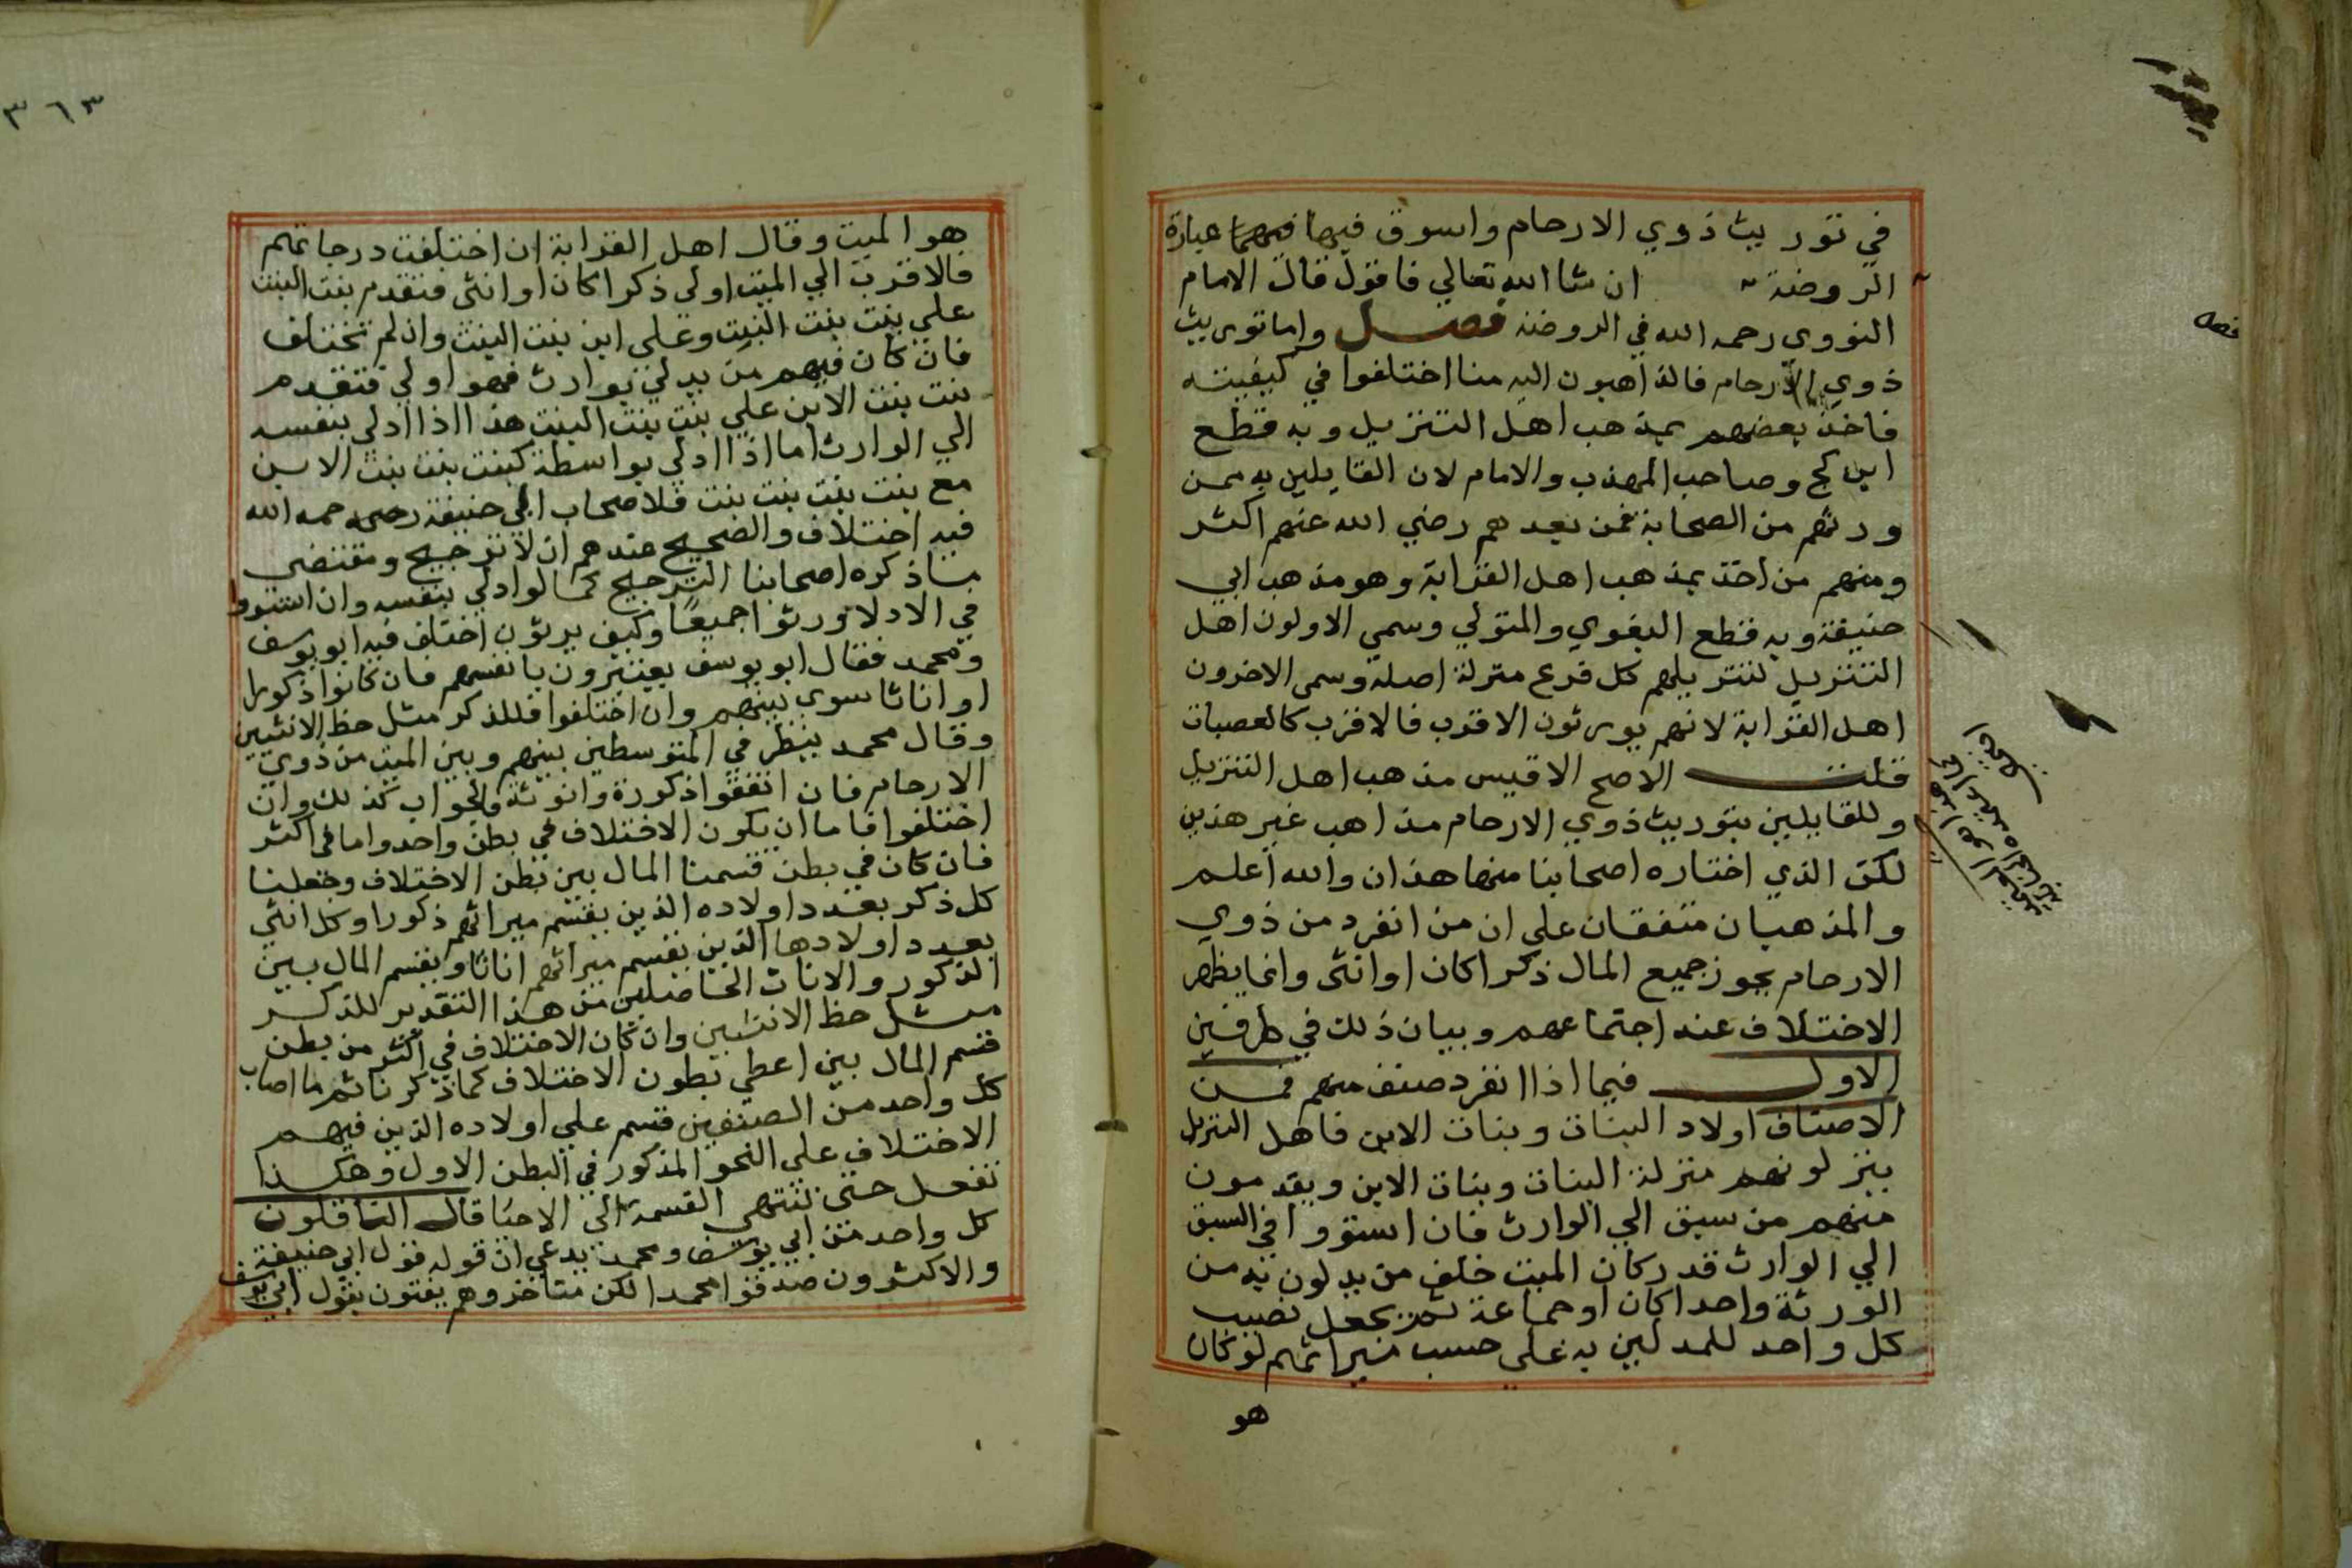 في توريث ذوي الارحام واسوق فيها فيهما عبارة
الروضة ان شا الله تعالي فاقول قال الامام
النووي رحمه الله في الروضة فصل واما توريث
ذوي الارحام فالذاهبون اليه منا اختلفوا في كيفيته
فاخذ بعضهم بمذهب اهل التنزيل وبه قطع
ابن كج وصاحب المهذب والامام لان القايلين به ممن
ورثهم من الصحابة فمن بعدهم رضي الله عنهم اكثر
ومنهم من اخذ بمذهب اهل القرابة وهو مذهب ابي
حنيفة وبه قطع البغوي والمتولي وسمي الاولون اهل
التنزيل لتنزيلهم كل فرع منزلة اصله وسمي الاخرون
اهل القرابة لانهم يورثون الاقرب فالاقرب كالعصبات
قلت الاصح الاقيس مذهب اهل التنزيل
وللقايلين بتوريث ذوي الارحام مذاهب غير هذين
لكن الذي اختاره اصحابنا منها هذان والله اعلم
والمذهبان متفقان علي ان من انفرد من ذوي
الارحام يحوز جميع المال ذكرا كان او انثى وانما يظهر
الاختلاف عند اجتماعهم وبيان ذلك في طرفين
الاول فيما اذا انفرد صنف منهم فمن
الاصناف اولاد البنات وبنات الابن فاهل التنزيل
ينزلونهم منزلة البنات وبنات الابن ويقدمون
منهم من سبق الي الوارث فان استووا في السبق
الي الوارث قدر كان الميت خلف من يدلون به من
الورثة واحدا كان او جماعة ثم يجعل نصيب
كل واحد للمدلين به على حسب ميراثهم لو كان
هو
٣٦٣
هو الميت وقال اهل القرابة ان اختلفت درجاتهم
فالاقرب الي الميت اولى ذكرا كان او انثى فتقدم بنت البنت
علي بنت بنت البنت وعلى ابن بنت البنت وان لم تختلف
فان كان فيهم من يدلي بوارث فهو اولي فتقدم
بنت بنت الابن علي بنت بنت البنت هذا اذا ادلي بنفسه
الي الوارث اما اذا ادلي بواسطة كبنت بنت بنت الابن
مع بنت بنت بنت بنت فلاصحاب ابي حنيفة رحمه الله
فيه اختلاف والصحيح عندهم ان لا ترجيح ومقتضى
ما ذكره اصحابنا الترجيح كما لو ادلي بنفسه وان استووا
في الادلا ورثوا جميعا وكيف يرثون اختلف فيه ابو يوسف
ومحمد فقال ابو يوسف يعتبرون بانفسهم فان كانوا ذكورا
او اناثا سوي بينهم وان اختلفوا فللذكر مثل حظ الانثيين
وقال محمد ينظر في المتوسطين بينهم وبين الميت من ذوي
الارحام فان اتفقوا ذكورة وانوثة فالجواب كذلك وان
اختلفوا فاما ان يكون الاختلاف في بطن واحد واما في اكثر
فان كان في بطن قسمنا المال بين بطن الاختلاف وجعلنا
كل ذكر بعدد اولاده الذين يقسم ميراثهم ذكورا وكل انثي
بعدد اولادها الذين يقسم ميراثهم اناثا ويقسم المال بين
الذكور والاناث الحاصلين من هذا التقدير للذكر
مثل حظ الانثيين وان كان الاختلاف في اكثر من بطن
قسم المال بين اعطي بطون الاختلاف كما ذكرنا ثم ما اصاب
كل واحد من الصنفين قسم علي اولاده الذين فيهم
الاختلاف علي النحو المذكور في البطن الاول وهكذا
تفعل حتى تنتهي القسمة الي الاحيا قال الناقلون
كل واحد من ابي يوسف ومحمد يدعي ان قوله قول ابي حنيفة
والاكثرون صدقوا محمدا لكن متاخروهم يفتون بقول ابي يوسف